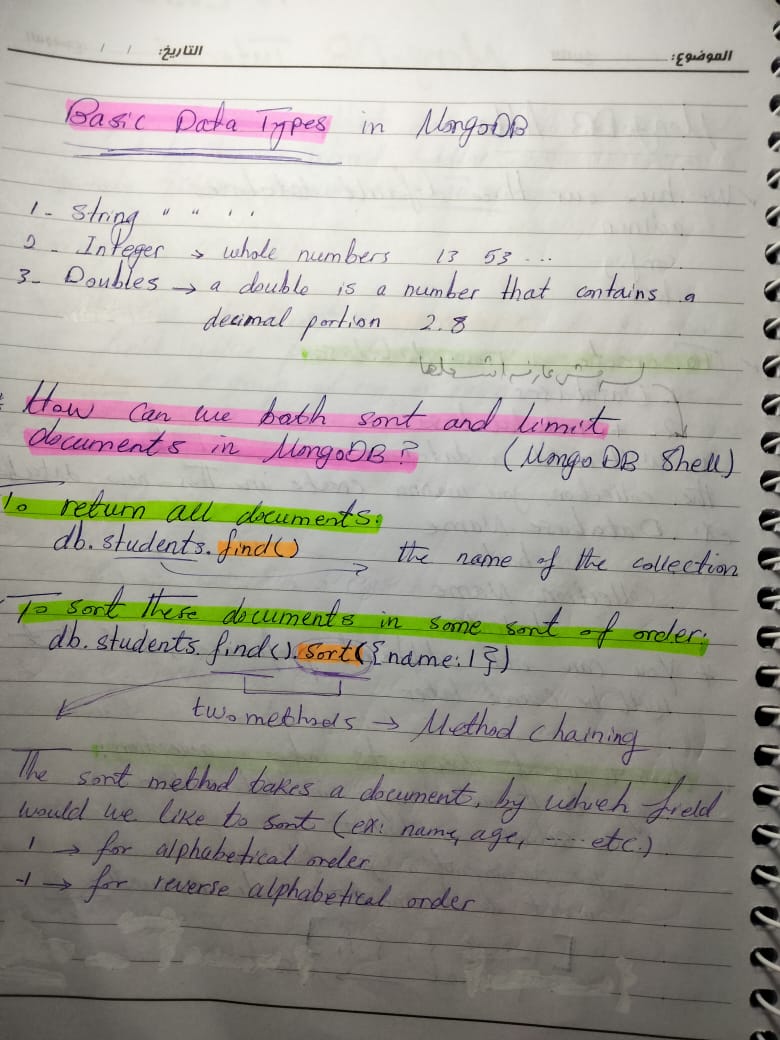 الموضوع:
التاريخ: / /
Basic Data Types in MongoDB
1- String " " ' '
2- Integer → whole numbers 13 53 ...
3- Doubles → a double is a number that contains a
decimal portion 2.8
بس مش عارفه اشغلها
* How can we both sort and limit
documents in MongoDB? (Mongo DB Shell)
To return all documents:
db.students.find() the name of the collection
- To sort these documents in some sort of order:
db.students.find().sort({name:1})
two methods → Method chaining
The sort method takes a document, by which field
would we like to sort (ex: name, age, ..... etc.)
1 → for alphabetical order
-1 → for reverse alphabetical order